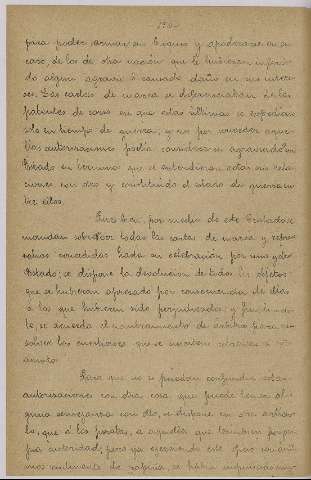 para poder armar un buque y apoderarse en su
caso, de los de otra nación que le hubieran inferi-
do algun agravio ó causado daño en sus intere-
ses. Las cartas de marca se diferenciaban de las
patentes de corso en que estas últimas se expedían
solo en tiempo de guerra, y no por conceder aque-
llas autorizaciones podía considerarse agraviado un
Estado en terminos que se entendieran rotas sus rela-
ciones con otro y constituido el estado de guerra en-
tre ellos.
Pues bien, por medio de este Tratado se
mandan sobreseer todas las cartas de marca y repre-
salias concedidas hasta su celebración por uno y otro
Estado; se dispone la devolución de todos los objetos
que se hubieran apresado por consecuencia de ellas
á los que hubieran sido perjudicados y finalmen-
te, se acuerda el nombramiento de árbitros para re-
solver las cuestiones que se susciten relativas á este
asunto.
Para que no se puedan confundir estas
autorizaciones con otra cosa que puede tener al-
guna semejanza con ello, se dispone en otro artícu-
lo, que á los piratas, ó aquellos que tambien por pro-
pia autoridad, pero ya ejerciendo este